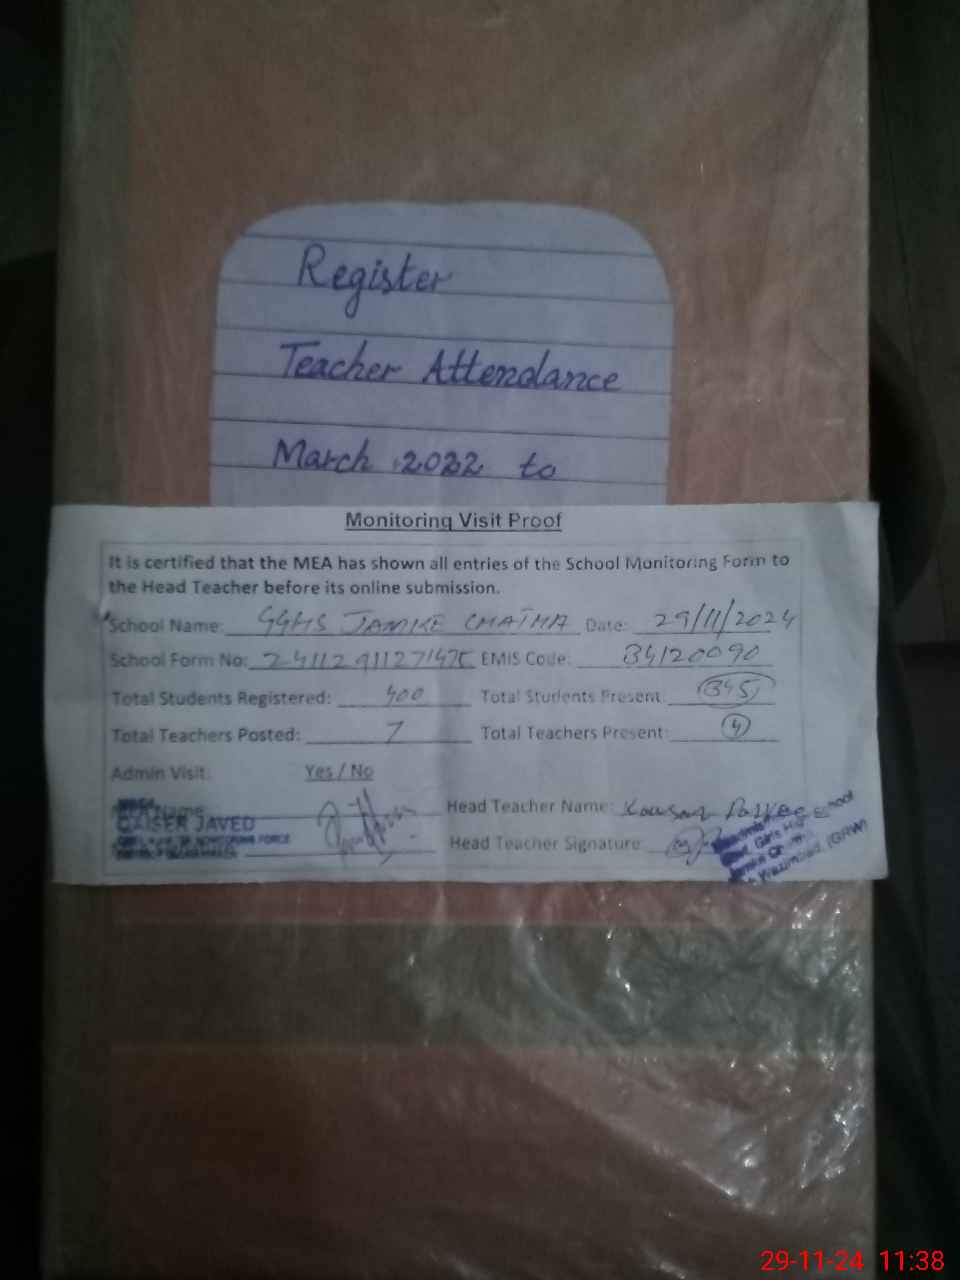 Register
Teacher Attendance
March 2022 to
Monitoring Visit Proof
It is certified that the MEA has shown all entries of the School Monitoring Form to
the Head Teacher before its online submission.
School Name: GGHS JAMKE CHATHA Date: 29/11/2024
School Form No: EMIS Code: 34120090
Total Students Registered: 400 Total Students Present: 345
Total Teachers Posted: 7 Total Teachers Present: 4
Admin Visit: Yes / No
Name Head Teacher Name: Kausar
QAISER JAVED School
Head Teacher Signature Girls High
(GRW)
29-11-24 11:38